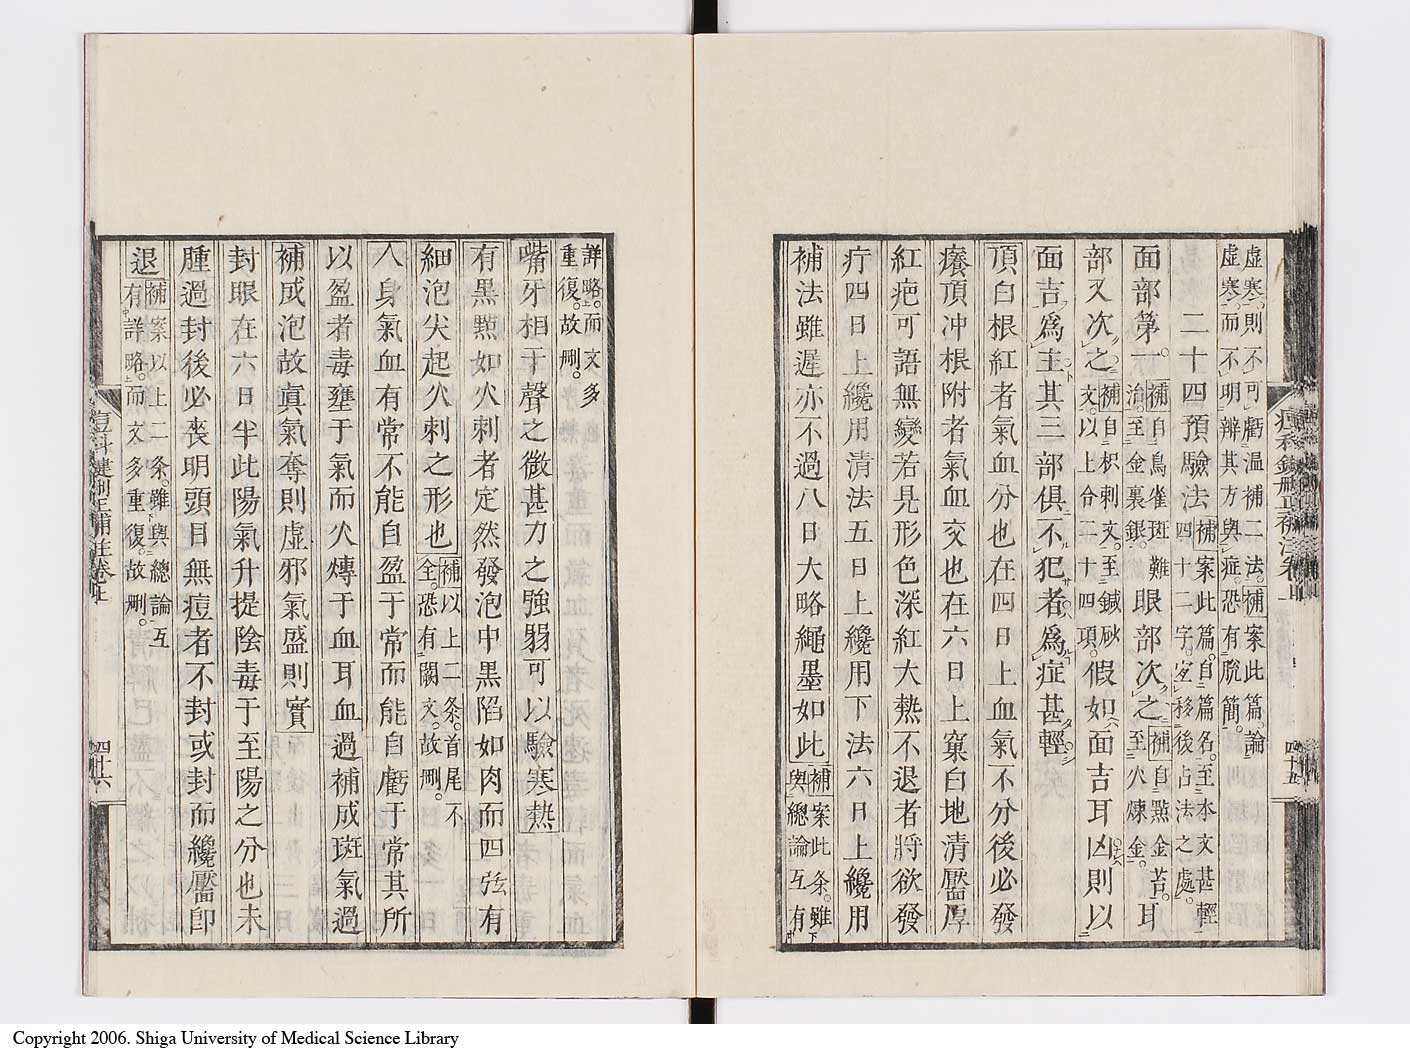 虚寒。則不可虧温補二法。補案此篇。論
虚寒。而不明辯其方與症。恐有脱簡。
二十四預驗法補案此篇。自篇名。至本文甚輕
四十二字。宜移後占法之處。
面部第一補自鳥雀斑難
治。至金裏銀。眼部次之補自黙金
至火煉金。耳
部又次之補自枳刺文。至鍼砂
文。以上合二十四項。假如面吉耳凶則以
面吉爲主其三部俱不犯者爲症甚輕
頂白根紅者氣血分也在四日上血氣不分後必發
癢頂冲根附者氣血交也在六日上窠白地清靨厚
紅疤可語無變若見形色深紅大熱不退者將欲發
疔四日上纔用清法五日上纔用下法六日上纔用
補法雖遲亦不過八日大略繩墨如此補案此條。雖
與總論互有
四十五
詳略。而文多
重復。故刪。
嘴牙相于聲之微甚力之強弱可以驗寒熱
有黒㸃如火刺者定然發泡中黒陷如肉而四弦有
細泡尖起火刺之形也補以上二條。首尾不
全。恐有闕文。故刪。
人身氣血有常不能自盈于常而能自虧于常其所
以盈者毒壅于氣而火煿于血耳血過補成斑氣過
補成泡故眞氣奪則虚邪氣盛則實
封眼在六日半此陽氣升提陰毒于至陽之分也未
腫過封後必喪明頭目無痘者不封或封而纔靨卽
退補案以上二條。雖與總論互
有詳略。而文多重復。故刪。
痘科鍵刪正補註卷上
四十六